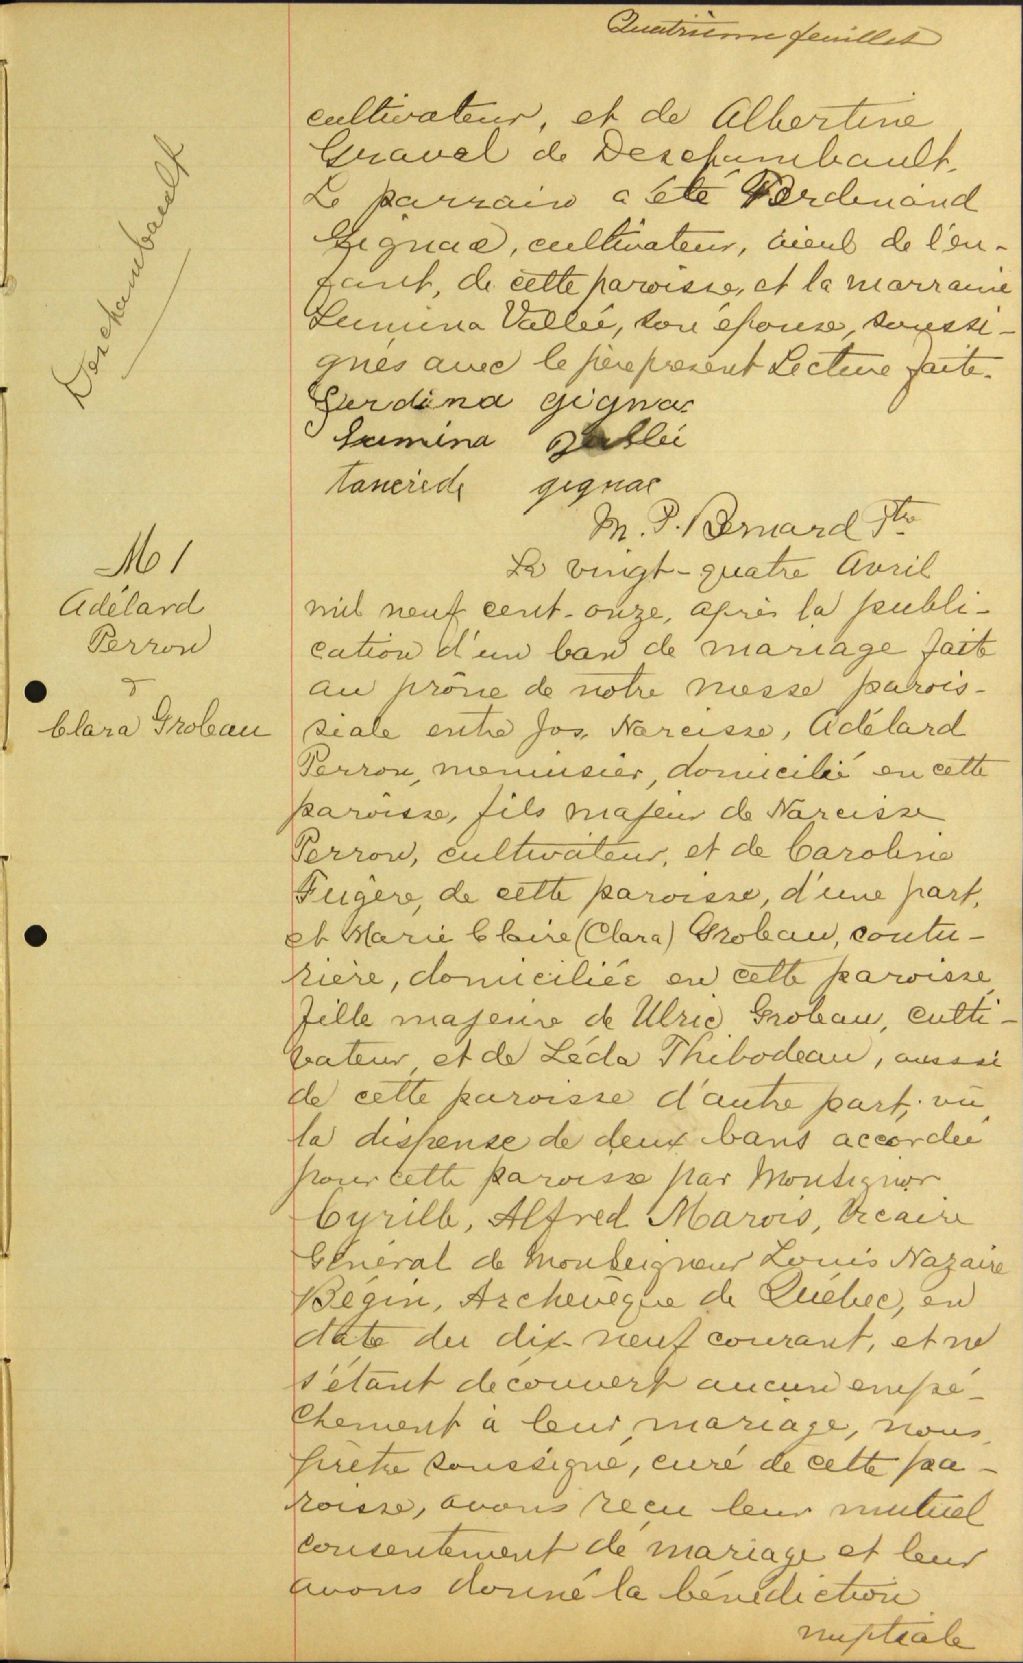 Quatrième feuillet
Deschambault
cultivateur, et de Albertine
Gravel de Deschambault.
Le parrain a été Ferdinand
Gignac, cultivateur, aïeul de l'en-
fant, de cette paroisse, et la marraine
Lumina Vallée, son épouse, soussi-
gnés avec le père présent Lecture faite.
Ferdina gignac
Lumina Vallé
tancrède gignac
M. P. Bernard Ptre
M 1
Adélard
Perron
&
Clara Groleau
Le vingt-quatre Avril
mil neuf cent-onze, après la publi-
cation d'un ban de mariage faite
au prône de notre messe parois-
siale entre Jos. Narcisse, Adélard
Perron, menuisier, domicilié en cette
paroisse, fils majeur de Narcisse
Perron, cultivateur, et de Caroline
Fugère, de cette paroisse, d'une part,
et Marie Claire (Clara) Groleau, coutu-
rière, domiciliée en cette paroisse,
fille majeure de Ulric Groleau, culti-
vateur, et de Léda Thibodeau, aussi
de cette paroisse d'autre part; vû
la dispense de deux bans accordée
pour cette paroisse par Monsignor
Cyrille, Alfred Marois, Vicaire
Général de Monseigneur Louis Nazaire
Bégin, Archevêque de Québec, en
date du dix-neuf courant, et ne
s'étant découvert aucun empê-
chement à leur mariage, nous,
prêtre soussigné, curé de cette pa-
roisse, avons reçu leur mutuel
consentement de mariage et leur
avons donné la bénédiction
nuptiale